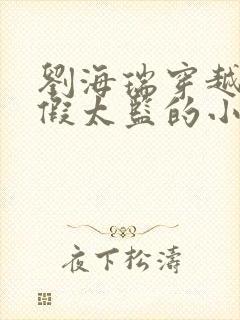 劉海瑞穿越
假太監的小
夜下松濤